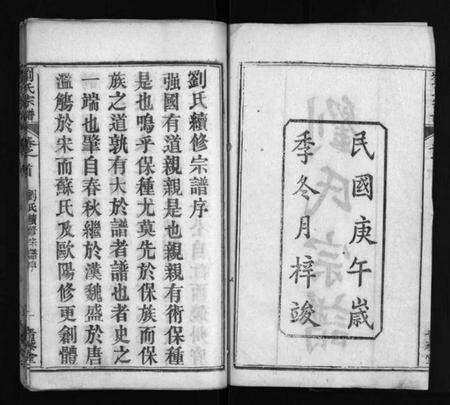 民國庚午歲
季冬月梓竣
劉氏宗譜
劉氏續修宗譜序
強國有道親親是也親親有術保種
是也嗚乎保種尤莫先於保族而保
族之道孰有大於譜者譜也者史之
一端也肇自春秋繼於漢魏盛於唐
濫觴於宋而蘇氏及歐陽修更創體
劉氏宗譜
卷之首
劉氏續修宗譜序